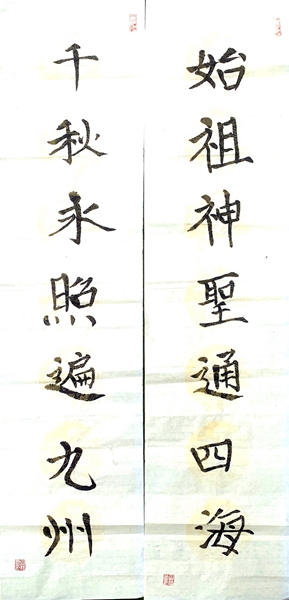 始祖神聖通四海
千秋永照遍九州